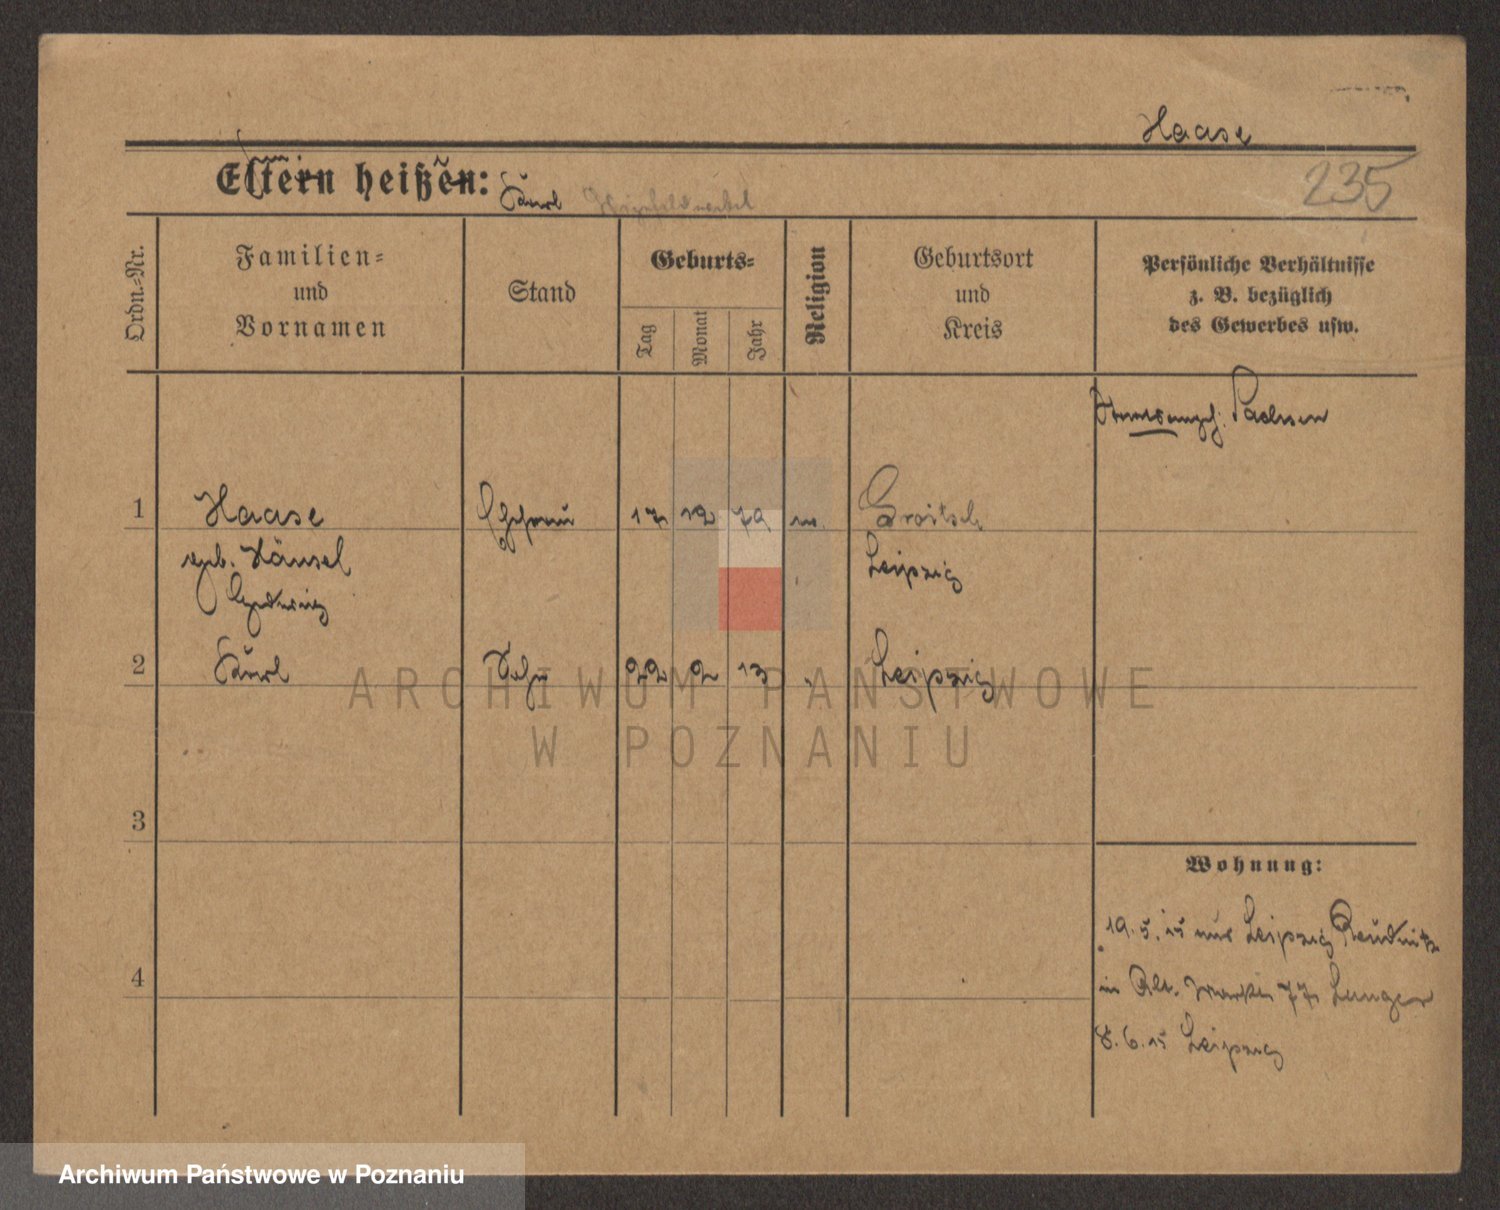 Haase
235
Eltern heißen:
Ehemann
Kurl Vizefeldwebel
Ordn.-Nr.
Familien- und Vornamen
Stand
Geburts-
Tag
Monat
Jahr
Religion
Geburtsort und Kreis
Persönliche Verhältnisse
z. B. bezüglich
des Gewerbes usw.
Staatsangeh. Sachsen
1 Haase Ehefrau 17 12 79 Groitsch
geb. Hänsel Leipzig
Hedwig
2 22 2 13 Leipzig
3
4
Wohnung:
19.5.15 aus Leipzig Reudnitz
in Alt. Markt 77
8.6.15 Leipzig
ARCHIWUM PAŃSTWOWE
W POZNANIU
Archiwum Państwowe w Poznaniu